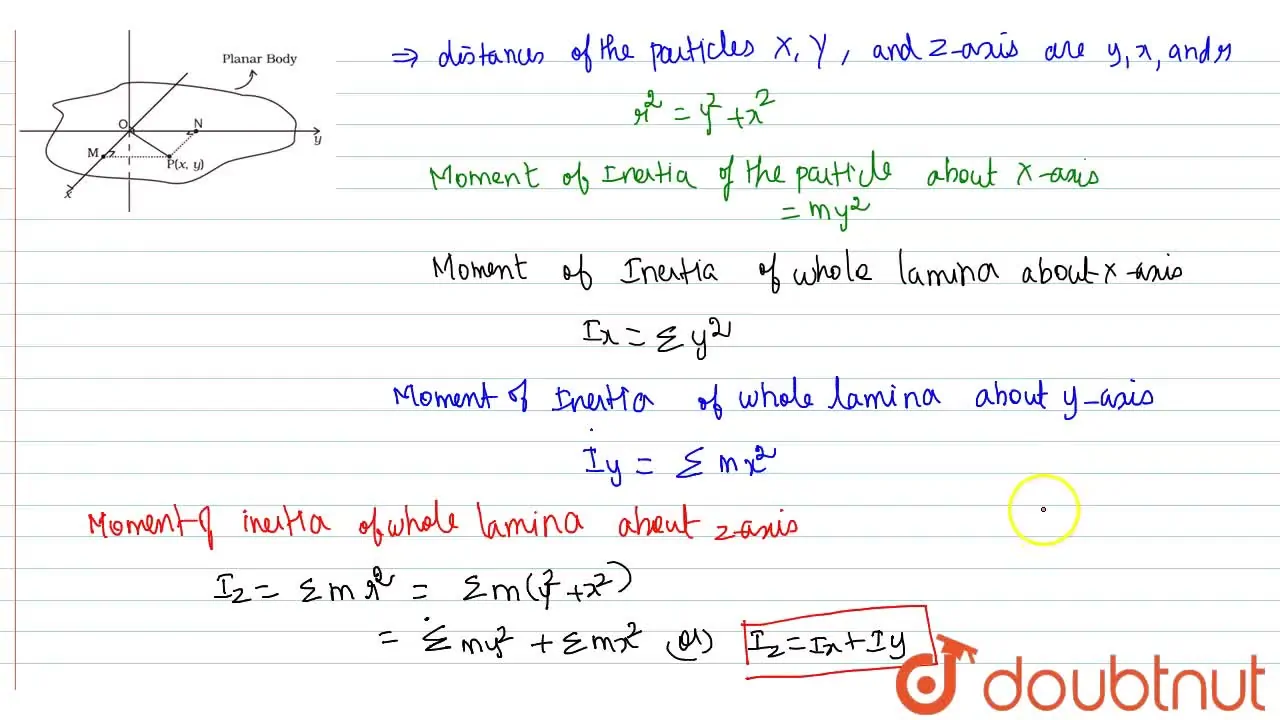 Planar Body
O
N
y
M
P(x, y)
x
⇒ distances of the particles X, Y, and z-axis are y, x, and r
r² = y² + x²
Moment of Inertia of the particle about X-axis
= my²
Moment of Inertia of whole lamina about x-axis
Ix = Σ y²
Moment of Inertia of whole lamina about y-axis
Iy = Σ mx²
Moment of inertia of whole lamina about z-axis
Iz = Σ m r² = Σ m(y² + x²)
= Σ my² + Σ mx² (or) Iz = Ix + Iy
doubtnut